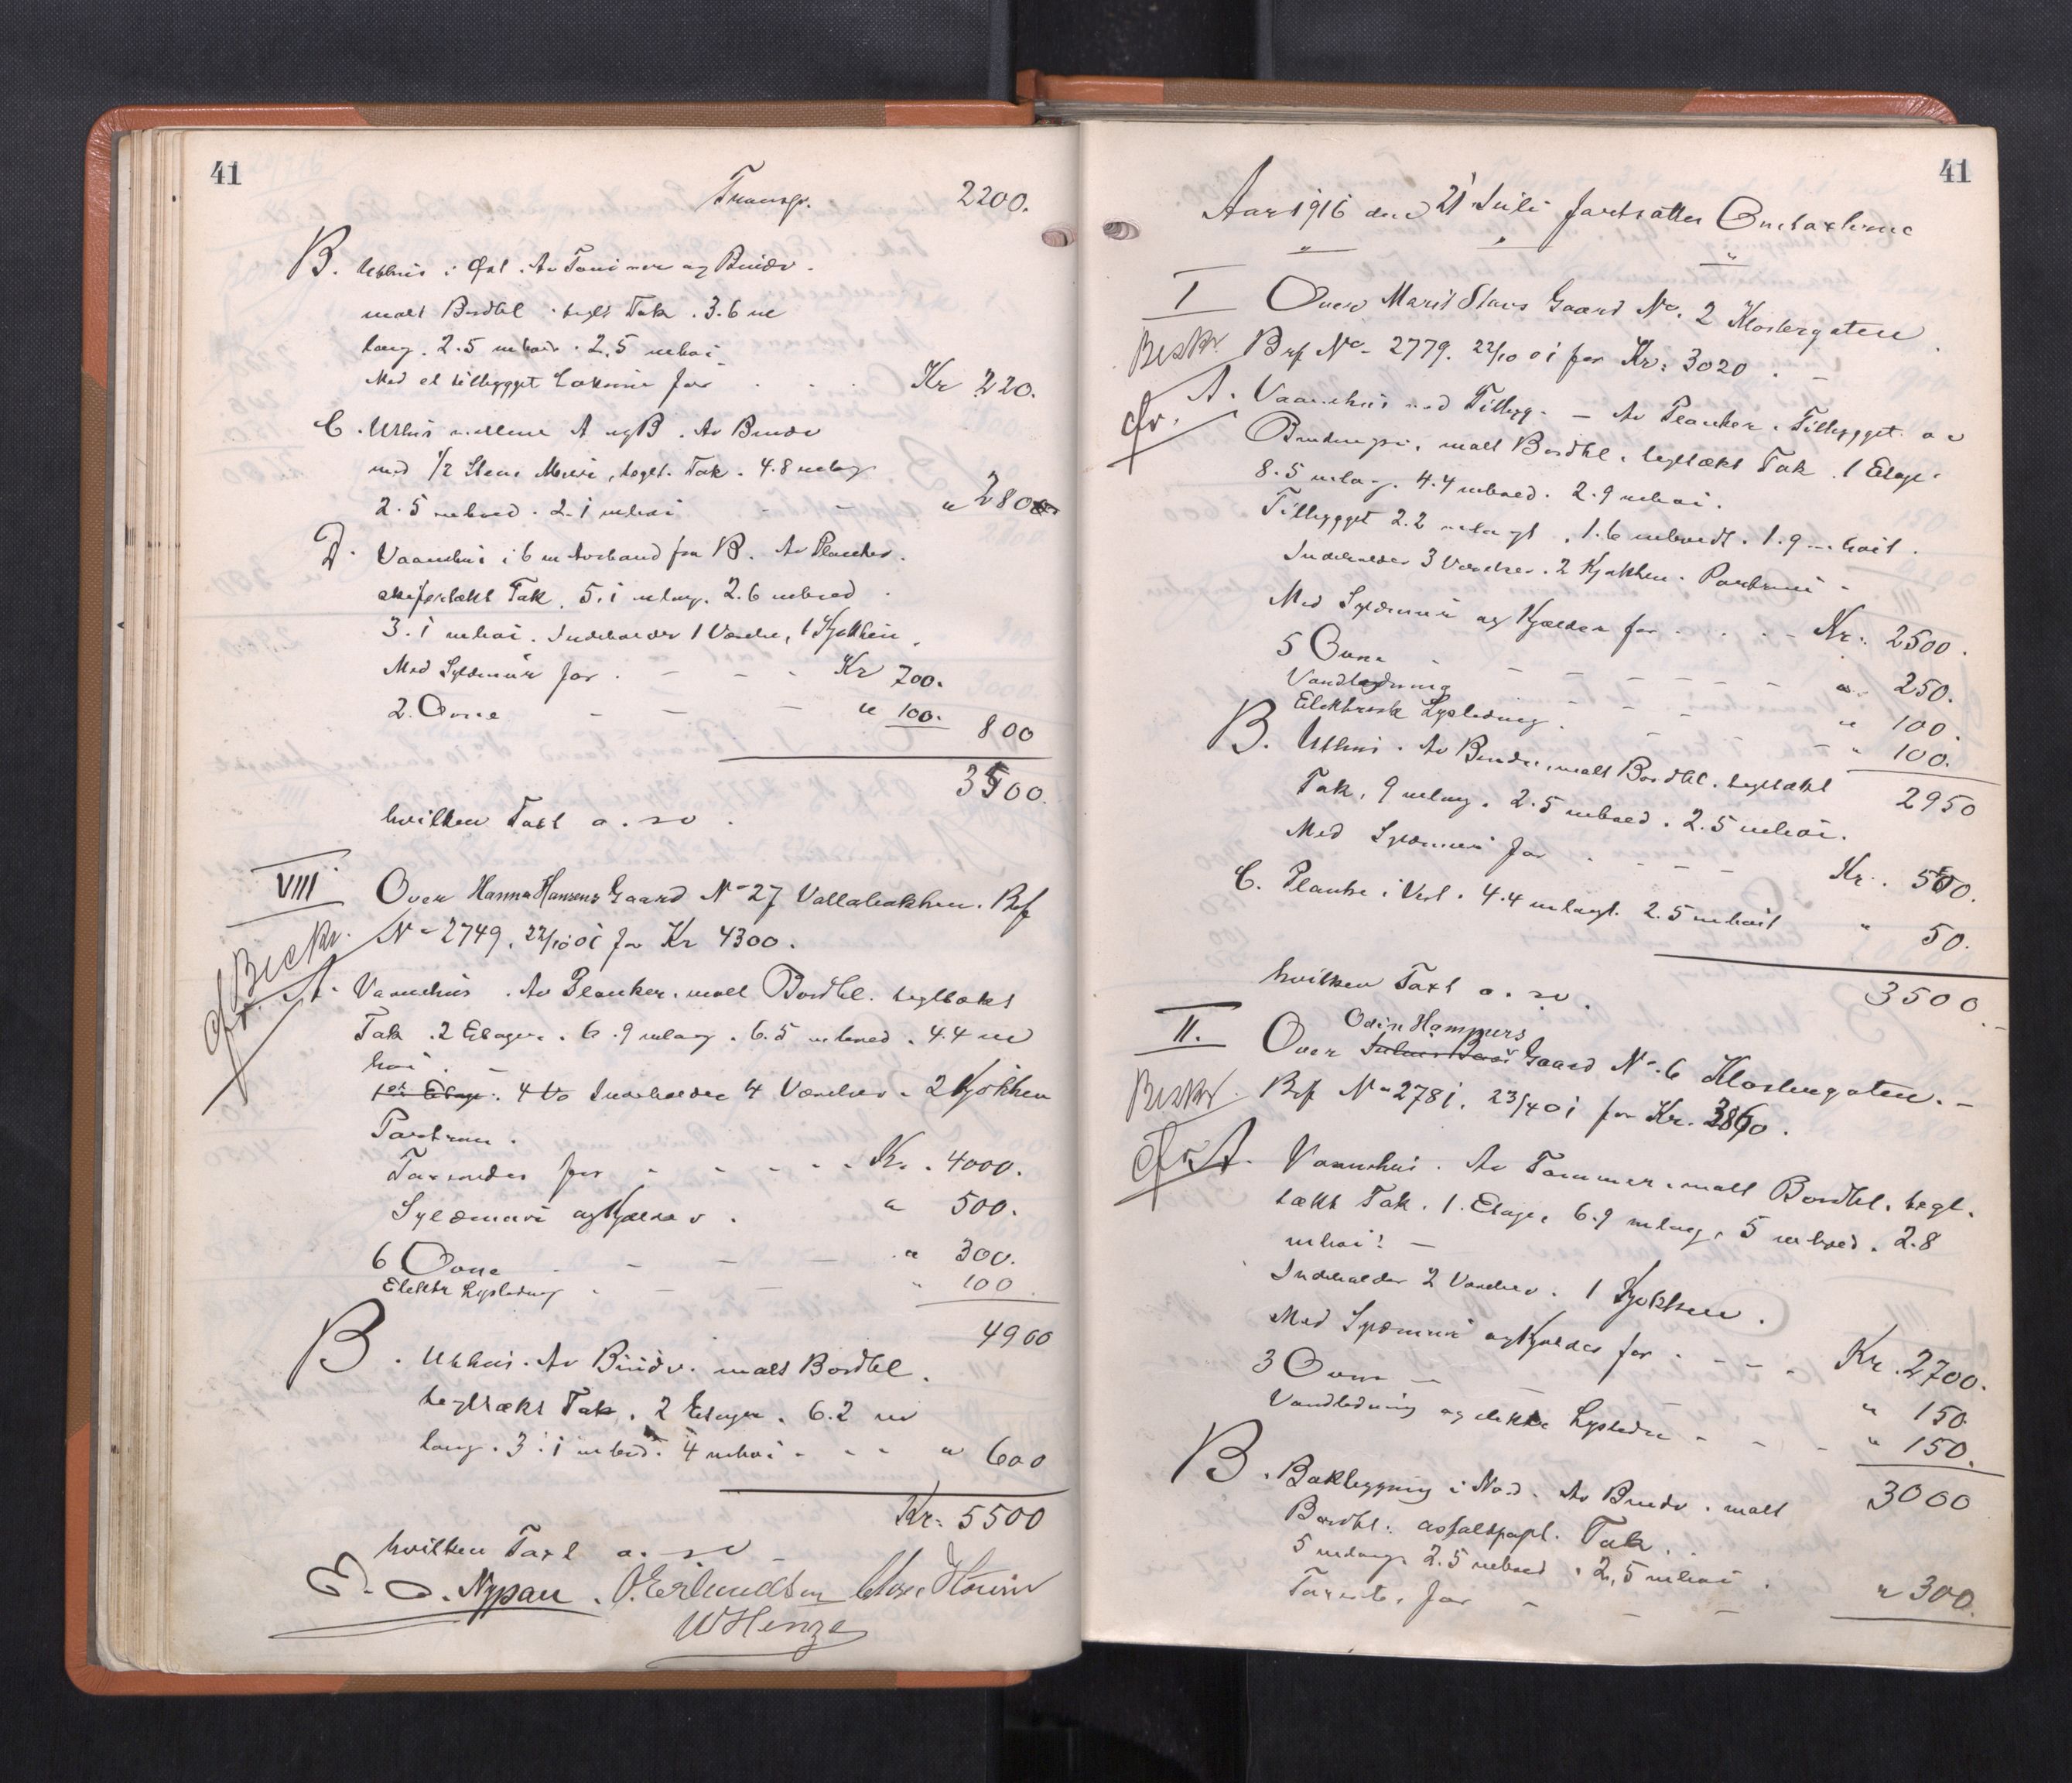 41
Transp. 2200.
B. Uthus i Øst. Av Tømmer og Bindv.
malt Bordkl. teglt Tak. 3.6 m
lang. 2.5 m bred. 2.5 m høi
Med et tilbygget Lokum for . . . Kr 220.
C. Uthus mellem A og B. Av Bindv
med 1/2 Stens Mur, teglt. Tak. 4.8 m lang
2.5 m bred. 2.1 m høi - - " 280
D. Vaanehus i 6 m Avstand fra B. Av Planker.
skifertækt Tak. 5.1 m lang. 2.6 m bred.
3.1 m høi. Indeholder 1 Værelse, 1 Kjøkken.
Med Syldmur for . - - - Kr 700.
2 Ovne - - - " 100. 800
3500.
hvilken Taxt a. sv.
VIII Over Hanna Hansens Gaard No 27 Vollabakken. Brf
Beskr. No 2749. 22/10 01 for Kr 4300.
cfr. A. Vaanehus. Av Planker. malt Bordkl. tegltækt
Tak. 2 Etager. 6.9 m lang. 6.5 m bred. 4.4 m
høi.
1ste Etage. 4 Væ Indeholder 4 Værelser. 2 Kjøkken
Portrum.
Taxeredes for - - - - Kr. 4000.
Syldmur og Kjelder. " 500.
6 Ovne - - - " 300.
Elektr Lysledning . - - - " 100
4900
B. Uthus. Av Bindv. malt Bordkl.
tegltækt Tak. 2 Etager. 6.2 m
lang. 3.1 m bred. 4 m høi - - - " 600
Kr. 5500
hvilken Taxt a. sv
E. O. Nypan. O. Erlandsen
W Henze
41
Aar 1916 den 21 Juli fortsattes Omtaxterne
" " "
I Over Marit Stavs Gaard No. 2 Klostergaten.
Beskr. Brf No 2779. 22/10 01 for Kr. 3020.
cfr. A. Vaanehus med Tilbyg. - Av Planker. Tilbygget av
Bindingsv. malt Bordkl. tegltækt Tak. 1 Etage.
8.5 m lang. 4.4 m bred. 2.9 m høi.
Tilbygget 2.2 m langt. 1.6 m bredt. 1.9 m høit.
Indeholder 3 Værelser. 2 Kjøkken. Portrum.
Med Syldmur og Kjelder for - - - - Kr. 2500.
5 Ovne - - - - - - " 250.
Vandledning - - - " 100.
Elektrisk Lysledning. - - - " 100.
2950
B. Uthus. Av Bindv. malt Bordkl. tegltækt
Tak. 9 m lang. 2.5 m bred. 2.5 m høi.
Med Syldmur for - - - - Kr. 500.
C. Planke i Vest. 4.4 m langt. 2.5 m høit " 50.
3500.
hvilken Taxt a. sv.
Odin Hammers
II. Over Gaard No. 6 Klostergaten. -
Beskr. Brf No 2781. 23/4 01 for Kr. 3860.
cfr A. Vaanehus. Av Tømmer. malt Bordkl. tegl.
tækt Tak. 1. Etage. 6.9 m lang. 5 m bred. 2.8
m høi. -
Indeholder 2 Værelser. 1 Kjøkken.
Med Syldmur og Kjelder for - - - - Kr. 2700.
3 Ovne - - " 150
Vandledning og elektr Lysledn - - - " 150.
3000
B. Bakbygning i Nord. Av Bindv. malt
Bordkl. asfaltpapt. Tak.
5 m lang. 2.5 m bred. 2,5 m høi.
Taxeredes for - - - " 300.